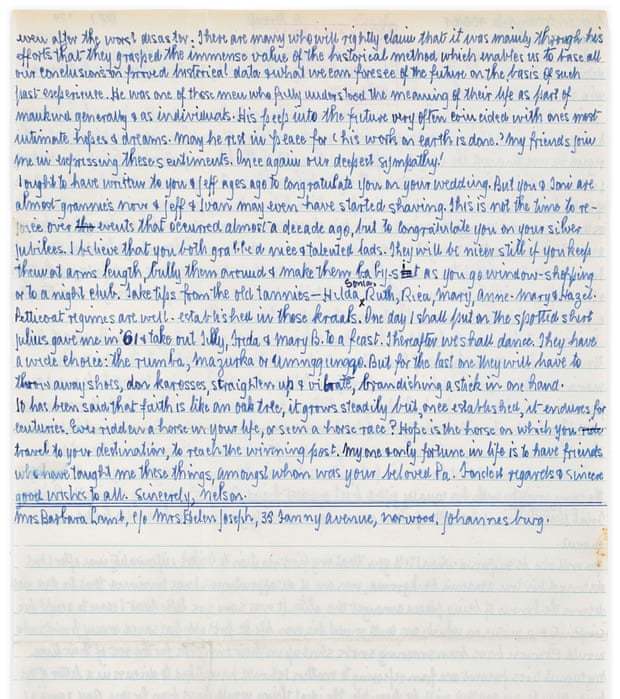 even after the worst disaster. There are many who will rightly claim that it was mainly through his
efforts that they grasped the immense value of the historical method which enables us to base all
our conclusions on proved historical data & what we can foresee of the future on the basis of such
past experience. He was one of those men who fully understood the meaning of their life as part of
mankind generally & as individuals. His peep into the future very often coincided with ones most
intimate hopes & dreams. May he rest in peace for 'his work on earth is done.' My friends join
me in expressing these sentiments. Once again our deepest sympathy!
I ought to have written to you & Jeff ages ago to congratulate you on your wedding. But you & Toni are
almost grannies now & Jeff & Ivan may even have started shaving. This is not the time to re-
joice over the events that occurred almost a decade ago, but to congratulate you on your silver
jubilees. I believe that you both grabbed nice & talented lads. They will be nicer still if you keep
them at arms length, bully them around & make them baby-sit as you go window-shopping
or to a night club. Take tips from the old tannies – Hilda, Sonia, Ruth, Rica, Mary, Anne-Mary & Hazel.
Petticoat regimes are well-established in those kraals. One day I shall put on the spotted shirt
Julius gave me in '61 & take out Tilly, Freda & Mary B. to a feast. Thereafter we shall dance. They have
a wide choice: the rumba, mazurka or umngqungqo. But for the last one they will have to
throw away shoes, don karosses, straighten up & vibrate, brandishing a stick in one hand.
It has been said that faith is like an oak tree, it grows steadily but, once established, it endures for
centuries. Ever ridden a horse in your life, or seen a horse race? Hope is the horse on which you ride
travel to your destination, to reach the winning post. My one & only fortune in life is to have friends
who have taught me these things, amongst whom was your beloved Pa. Fondest regards & sincere
good wishes to all. Sincerely, Nelson.
Mrs Barbara Lamb, c/o Mrs Helen Joseph, 35 Fanny Avenue, Norwood, Johannesburg.